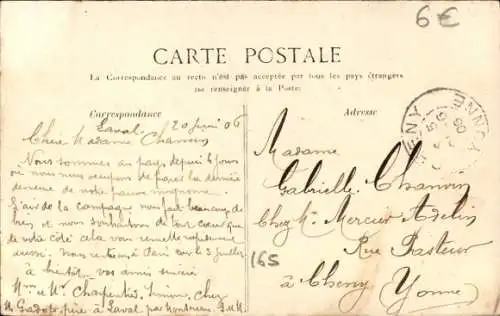 6€
CARTE POSTALE
La Correspondance au recto n'est pas acceptée par tous les pays étrangers
(se renseigner à la Poste)
Correspondance
Adresse
Laval 20 Juin 06
Chère Madame Chanvin
Nous sommes au pays depuis 6 jours
où nous nous occupons de parer la dernière
demeure de notre pauvre mignonne.
L'air de la campagne nous fait beaucoup de
bien et nous souhaitons de tout cœur que
de votre côté cela vous remette
aussi. Nous rentrons à Paris le 3 juillet
à bientôt vos amis
Mme et Mr Charpentié, chez
Mr père à Laval par
Madame
Gabrielle Chanvin
Chez Mr Mercier
Rue Pasteur
à Cheny Yonne
165
CHENY
YONNE